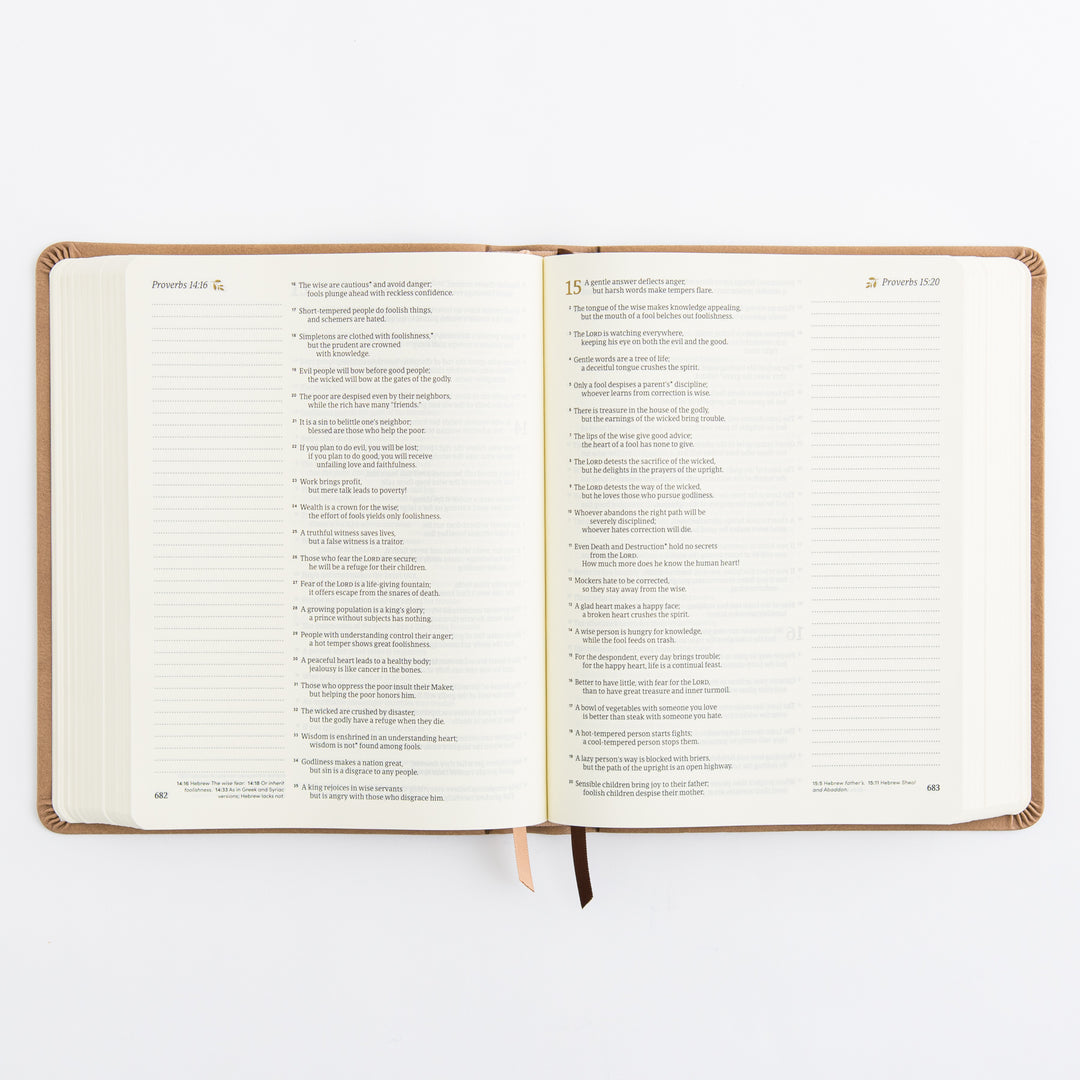 Proverbs 14:16
16 The wise are cautious* and avoid danger;
fools plunge ahead with reckless confidence.
17 Short-tempered people do foolish things,
and schemers are hated.
18 Simpletons are clothed with foolishness,*
but the prudent are crowned
with knowledge.
19 Evil people will bow before good people;
the wicked will bow at the gates of the godly.
20 The poor are despised even by their neighbors,
while the rich have many “friends.”
21 It is a sin to belittle one’s neighbor;
blessed are those who help the poor.
22 If you plan to do evil, you will be lost;
if you plan to do good, you will receive
unfailing love and faithfulness.
23 Work brings profit,
but mere talk leads to poverty!
24 Wealth is a crown for the wise;
the effort of fools yields only foolishness.
25 A truthful witness saves lives,
but a false witness is a traitor.
26 Those who fear the LORD are secure;
he will be a refuge for their children.
27 Fear of the LORD is a life-giving fountain;
it offers escape from the snares of death.
28 A growing population is a king’s glory;
a prince without subjects has nothing.
29 People with understanding control their anger;
a hot temper shows great foolishness.
30 A peaceful heart leads to a healthy body;
jealousy is like cancer in the bones.
31 Those who oppress the poor insult their Maker,
but helping the poor honors him.
32 The wicked are crushed by disaster,
but the godly have a refuge when they die.
33 Wisdom is enshrined in an understanding heart;
wisdom is not* found among fools.
34 Godliness makes a nation great,
but sin is a disgrace to any people.
35 A king rejoices in wise servants
but is angry with those who disgrace him.
14:16 Hebrew The wise fear. 14:18 Or inherit
foolishness. 14:33 As in Greek and Syriac
versions; Hebrew lacks not.
682
Proverbs 15:20
15 A gentle answer deflects anger,
but harsh words make tempers flare.
2 The tongue of the wise makes knowledge appealing,
but the mouth of a fool belches out foolishness.
3 The LORD is watching everywhere,
keeping his eye on both the evil and the good.
4 Gentle words are a tree of life;
a deceitful tongue crushes the spirit.
5 Only a fool despises a parent’s* discipline;
whoever learns from correction is wise.
6 There is treasure in the house of the godly,
but the earnings of the wicked bring trouble.
7 The lips of the wise give good advice;
the heart of a fool has none to give.
8 The LORD detests the sacrifice of the wicked,
but he delights in the prayers of the upright.
9 The LORD detests the way of the wicked,
but he loves those who pursue godliness.
10 Whoever abandons the right path will be
severely disciplined;
whoever hates correction will die.
11 Even Death and Destruction* hold no secrets
from the LORD.
How much more does he know the human heart!
12 Mockers hate to be corrected,
so they stay away from the wise.
13 A glad heart makes a happy face;
a broken heart crushes the spirit.
14 A wise person is hungry for knowledge,
while the fool feeds on trash.
15 For the despondent, every day brings trouble;
for the happy heart, life is a continual feast.
16 Better to have little, with fear for the LORD,
than to have great treasure and inner turmoil.
17 A bowl of vegetables with someone you love
is better than steak with someone you hate.
18 A hot-tempered person starts fights;
a cool-tempered person stops them.
19 A lazy person’s way is blocked with briers,
but the path of the upright is an open highway.
20 Sensible children bring joy to their father;
foolish children despise their mother.
15:5 Hebrew father’s. 15:11 Hebrew Sheol
and Abaddon.
683